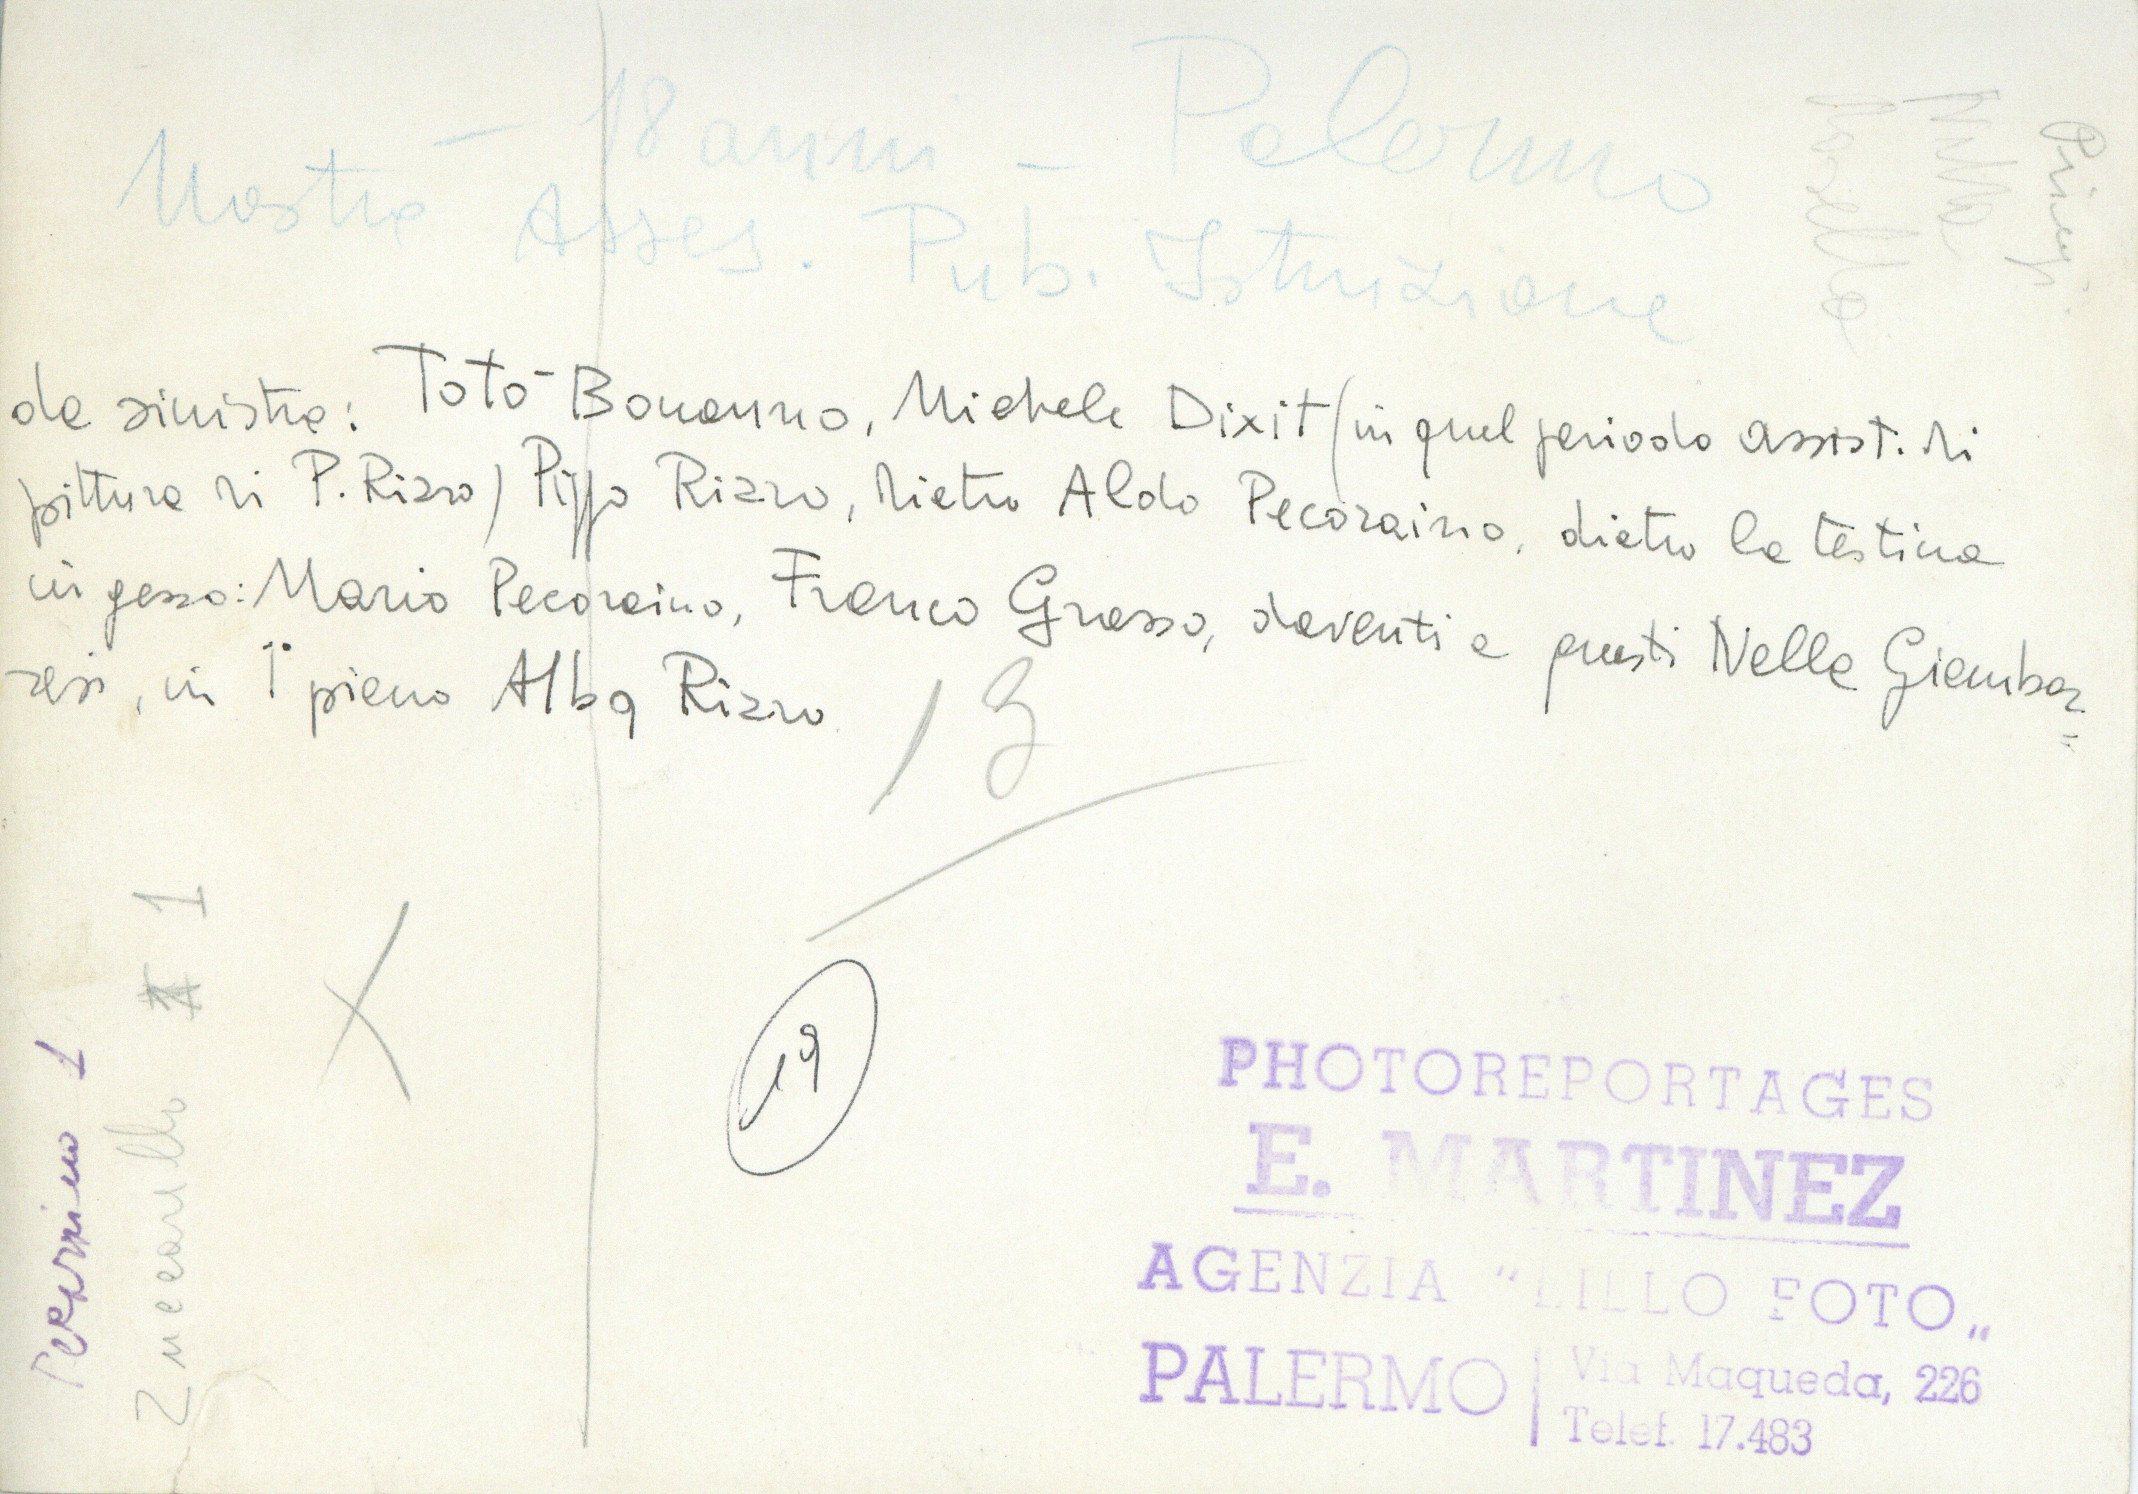 Mostra - 18 anni - Palermo
Asses. Pub. Istruzione
da sinistra: Totò Bonanno, Michele Dixit (in quel periodo assist. di
pittura di P. Rizzo) Pippo Rizzo, dietro Aldo Pecoraino, dietro la testina
in gesso: Mario Pecoraino, Franco Grasso, davanti a questi Nella Giambar=
resi, in 1° piano Alba Rizzo
13
19
X
1
Pecoraino 1
Zuccarello 1
PHOTOREPORTAGES
E. MARTINEZ
AGENZIA "LILLO FOTO„
PALERMO | Via Maqueda, 226
Telef. 17.483